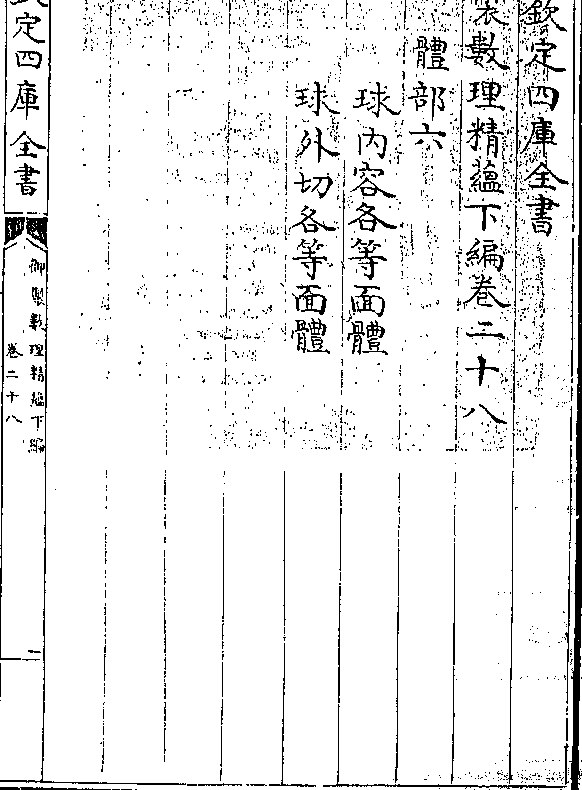 欽定四庫全書
製數理精蘊下編卷二十八
體部六
球內容各等面體
球外切各等面體
欽定四庫全書
御製數理精蘊下編
卷二十八
一